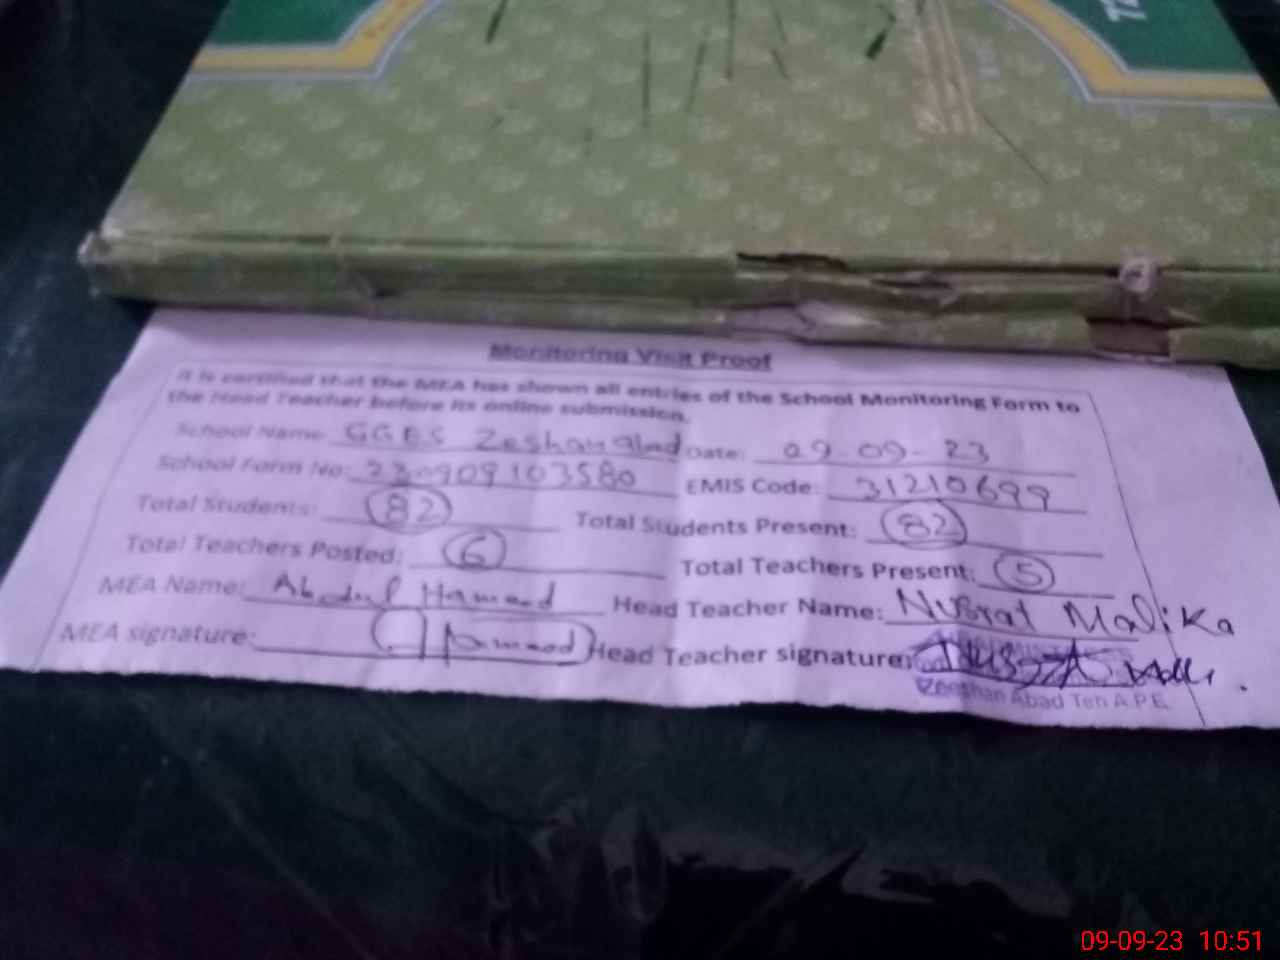 Monitoring Visit Proof
It is certified that the MEA has shown all entries of the School Monitoring Form to
the Head Teacher before its online submission.
School Name: GGES Zeshan Abad Date: 09-09-23
School Form No: 230909103580 EMIS Code: 31210699
Total Students: 82 Total Students Present: 82
Total Teachers Posted: 6 Total Teachers Present: 5
MEA Name: Abdul Hameed Head Teacher Name: Nusrat Malika
MEA signature: Hameed Head Teacher signature:
Zeeshan Abad Teh A.P.E.
09-09-23 10:51